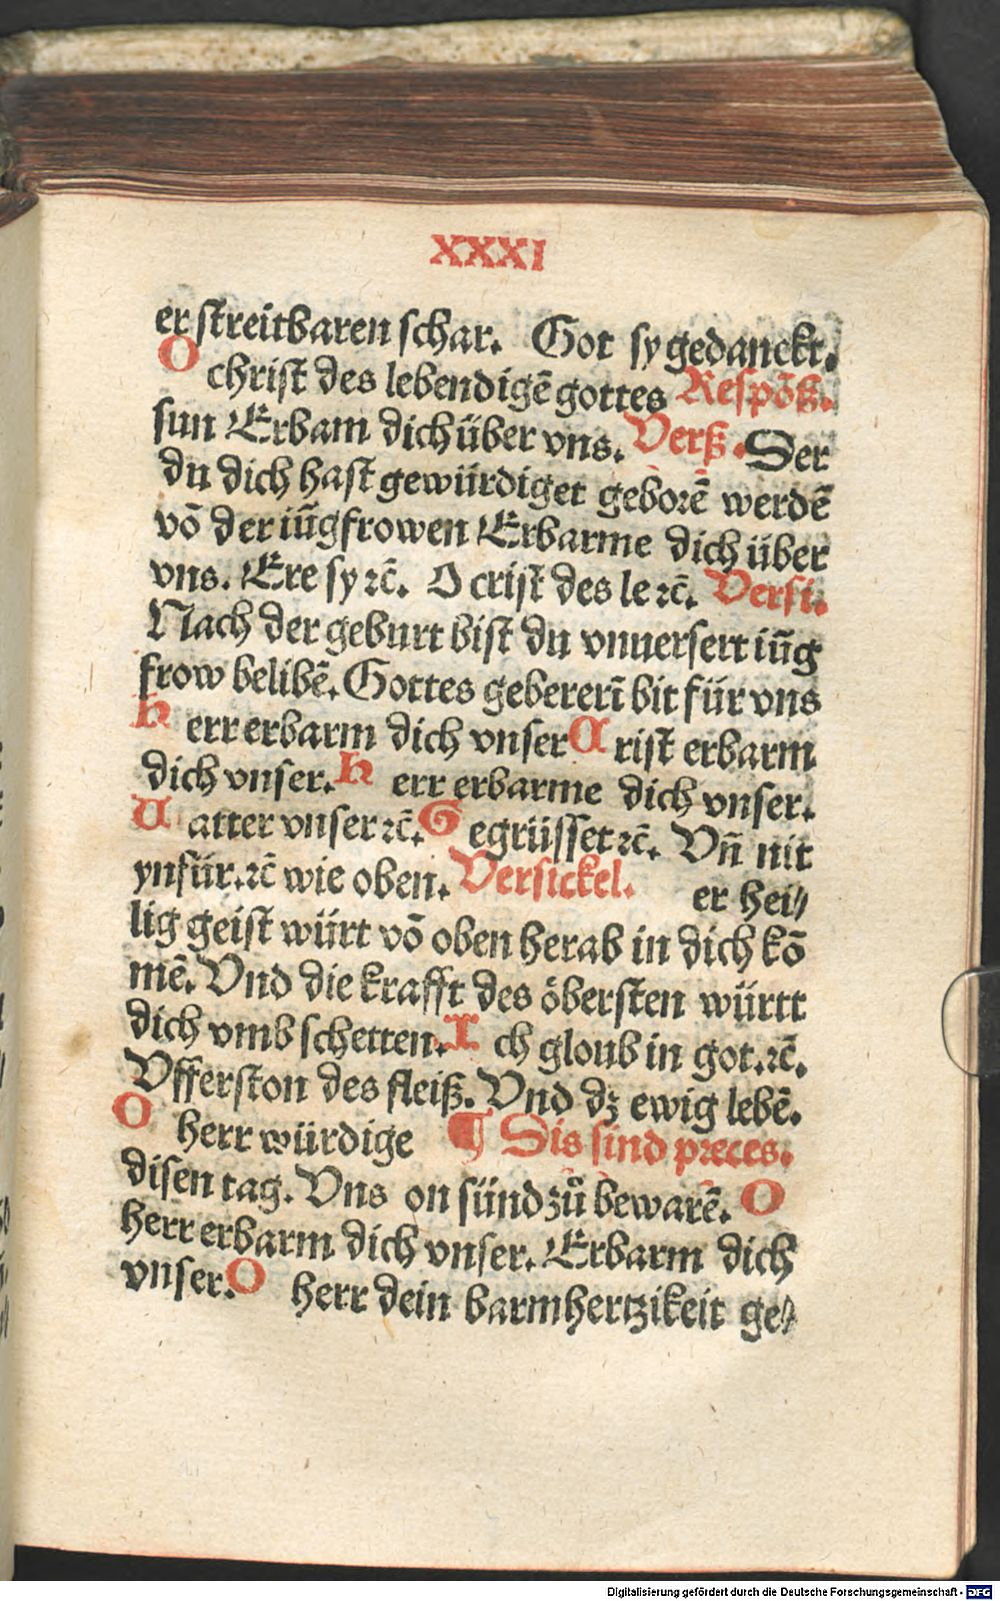 XXXI
er streitbaren schar. Got sy gedanckt.
O christ des lebendigē gottes Respōß.
sun Erbam dich über vns. Verß. Der
du dich hast gewürdiget geborē werdē
vō der iūgfrowen Erbarme dich über
vns. Ere sy ⁊c̄. O crist des le ⁊c̄. Versi.
Nach der geburt bist du vnuersert iūg
frow belibē. Gottes gebererī bit für vns
h err erbarm dich vnser C rist erbarm
dich vnser. h err erbarme dich vnser.
V atter vnser ⁊c̄. G egrüsset ⁊c̄. Vn̄ nit
ynfür. ⁊c̄ wie oben. Versickel. er hei⸗
lig geist würt vō oben herab in dich kō
mē. Vnd die krafft des öbersten württ
dich vmb schetten. I ch gloub in got. ⁊c̄.
Vfferston des fleiß. Vnd dz ewig lebē.
O herr würdige ¶ Dis sind preces.
disen tag. Vns on sünd zuͦ bewarē. O
herr erbarm dich vnser. Erbarm dich
vnser. O herr dein barmhertzikeit ge⸗
Digitalisierung gefördert durch die Deutsche Forschungsgemeinschaft - DFG